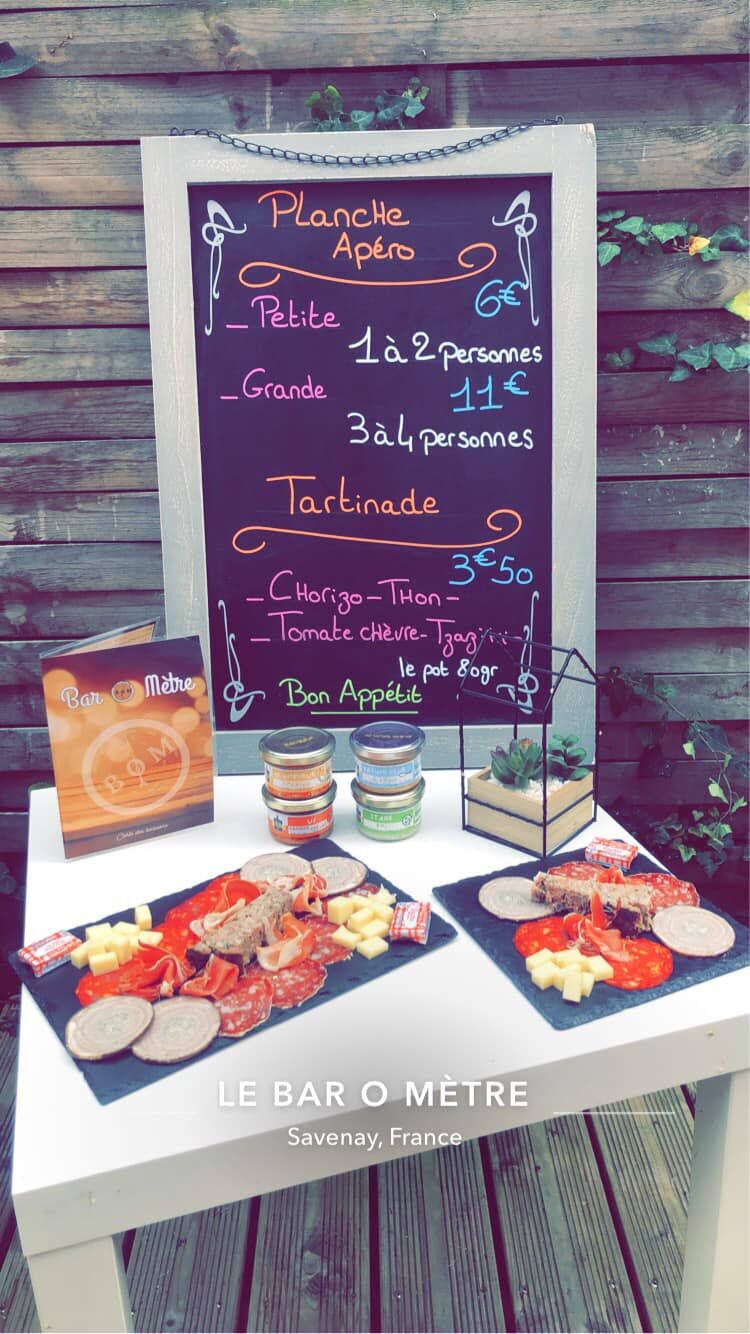 PLancHe
Apéro
- Petite 6€
1 à 2 personnes
- Grande 11€
3 à 4 personnes
Tartinade
3€50
- CHorizo - THon -
- Tomate cHèvre - Tzaz
le pot 80gr
Bon Appétit
Bar BOM Mètre
BOM
LE BAR O MÈTRE
Savenay, France